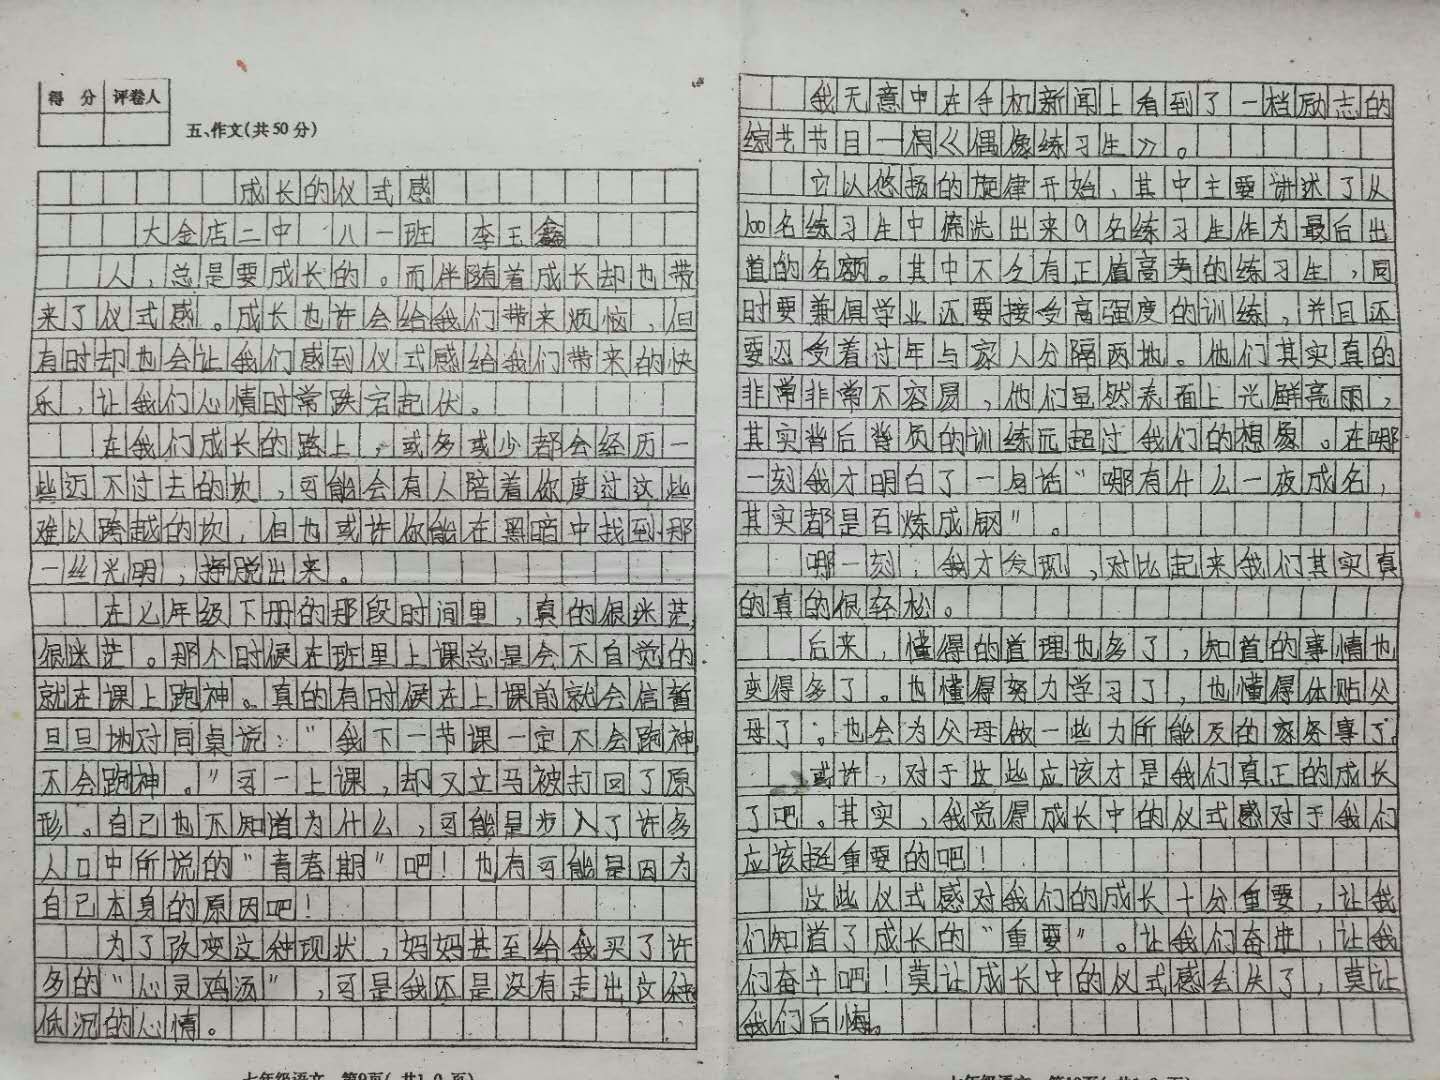 得 分 评卷人
五、作文(共50分)
成长的仪式感
大金店二中 八一班 李玉鑫
人，总是要成长的。而伴随着成长却也带
来了仪式感。成长也许会给我们带来烦恼，但
有时却也会让我们感到仪式感给我们带来的快
乐，让我们心情时常跌宕起伏。
在我们成长的路上，或多或少都会经历一
些迈不过去的坎，可能会有人陪着你度过这些
难以跨越的坎，但也或许你能在黑暗中找到那
一丝光明，挣脱出来。
在七年级下册的那段时间里，真的很迷茫，
很迷茫。那个时候在班里上课总是会不自觉的
就在课上跑神。真的有时候在上课前就会信誓
旦旦地对同桌说："我下一节课一定不会跑神，
不会跑神。"可一上课，却又立马被打回了原
形。自己也不知道为什么，可能是步入了许多
人口中所说的"青春期"吧！也有可能是因为
自己本身的原因吧！
为了改变这种现状，妈妈甚至给我买了许
多的"心灵鸡汤"，可是我还是没有走出这种
低沉的心情。
七年级语文 第9页(共10页)
我无意中在手机新闻上看到了一档励志的
综艺节目一偶《偶像练习生》。
它以悠扬的旋律开始，其中主要讲述了从
100名练习生中筛选出来9名练习生作为最后出
道的名额。其中不乏有正值高考的练习生，同
时要兼俱学业还要接受高强度的训练，并且还
要忍受着过年与家人分隔两地。他们其实真的
非常非常不容易，他们虽然表面上光鲜亮丽，
其实背后背负的训练远超过我们的想象。在哪
一刻我才明白了一句话"哪有什么一夜成名，
其实都是百炼成钢"。
哪一刻，我才发现，对比起来我们其实真
的真的很轻松。
后来，懂得的道理也多了，知道的事情也
变得多了。也懂得努力学习了，也懂得体贴父
母了。也会为父母做一些力所能及的家务事了。
或许，对于这些应该才是我们真正的成长
了吧。其实，我觉得成长中的仪式感对于我们
应该挺重要的吧！
这些仪式感对我们的成长十分重要，让我
们知道了成长的"重要"。让我们奋进，让我
们奋斗吧！莫让成长中的仪式感会失了，莫让
我们后悔。
七年级语文 第10页(共10页)